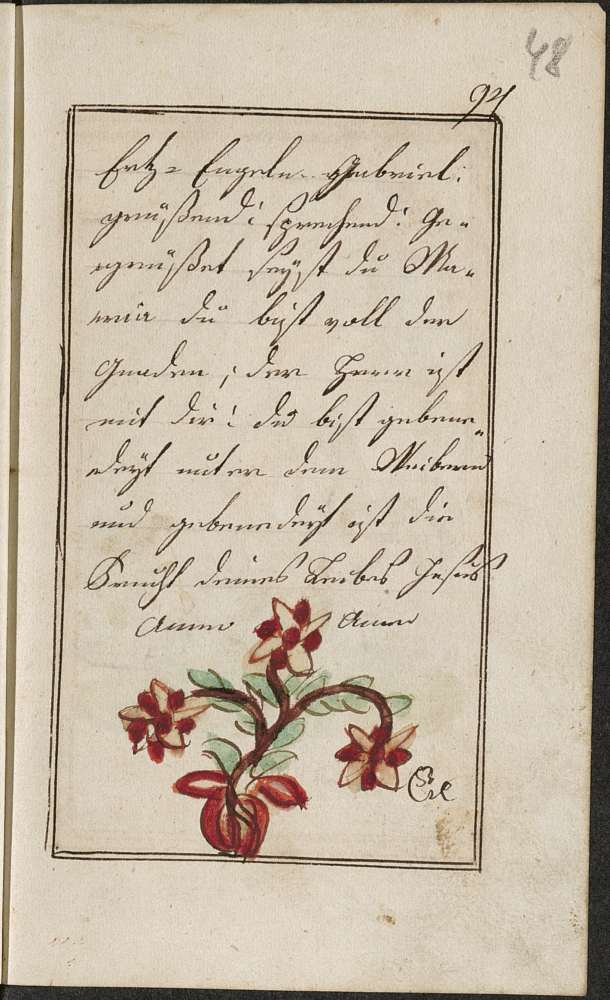 48
94
Ertz= Engeln Gabriel:
grüßend: sprechend: Ge=
egrüßet seyst du Ma=
eria du bist voll der
Gnaden, der Herr ist
mit dir: du bist gebene=
edeyt unter den Weibern
und gebenedeyt ist die
Frucht deines Leibes Jesus
Amen Amen